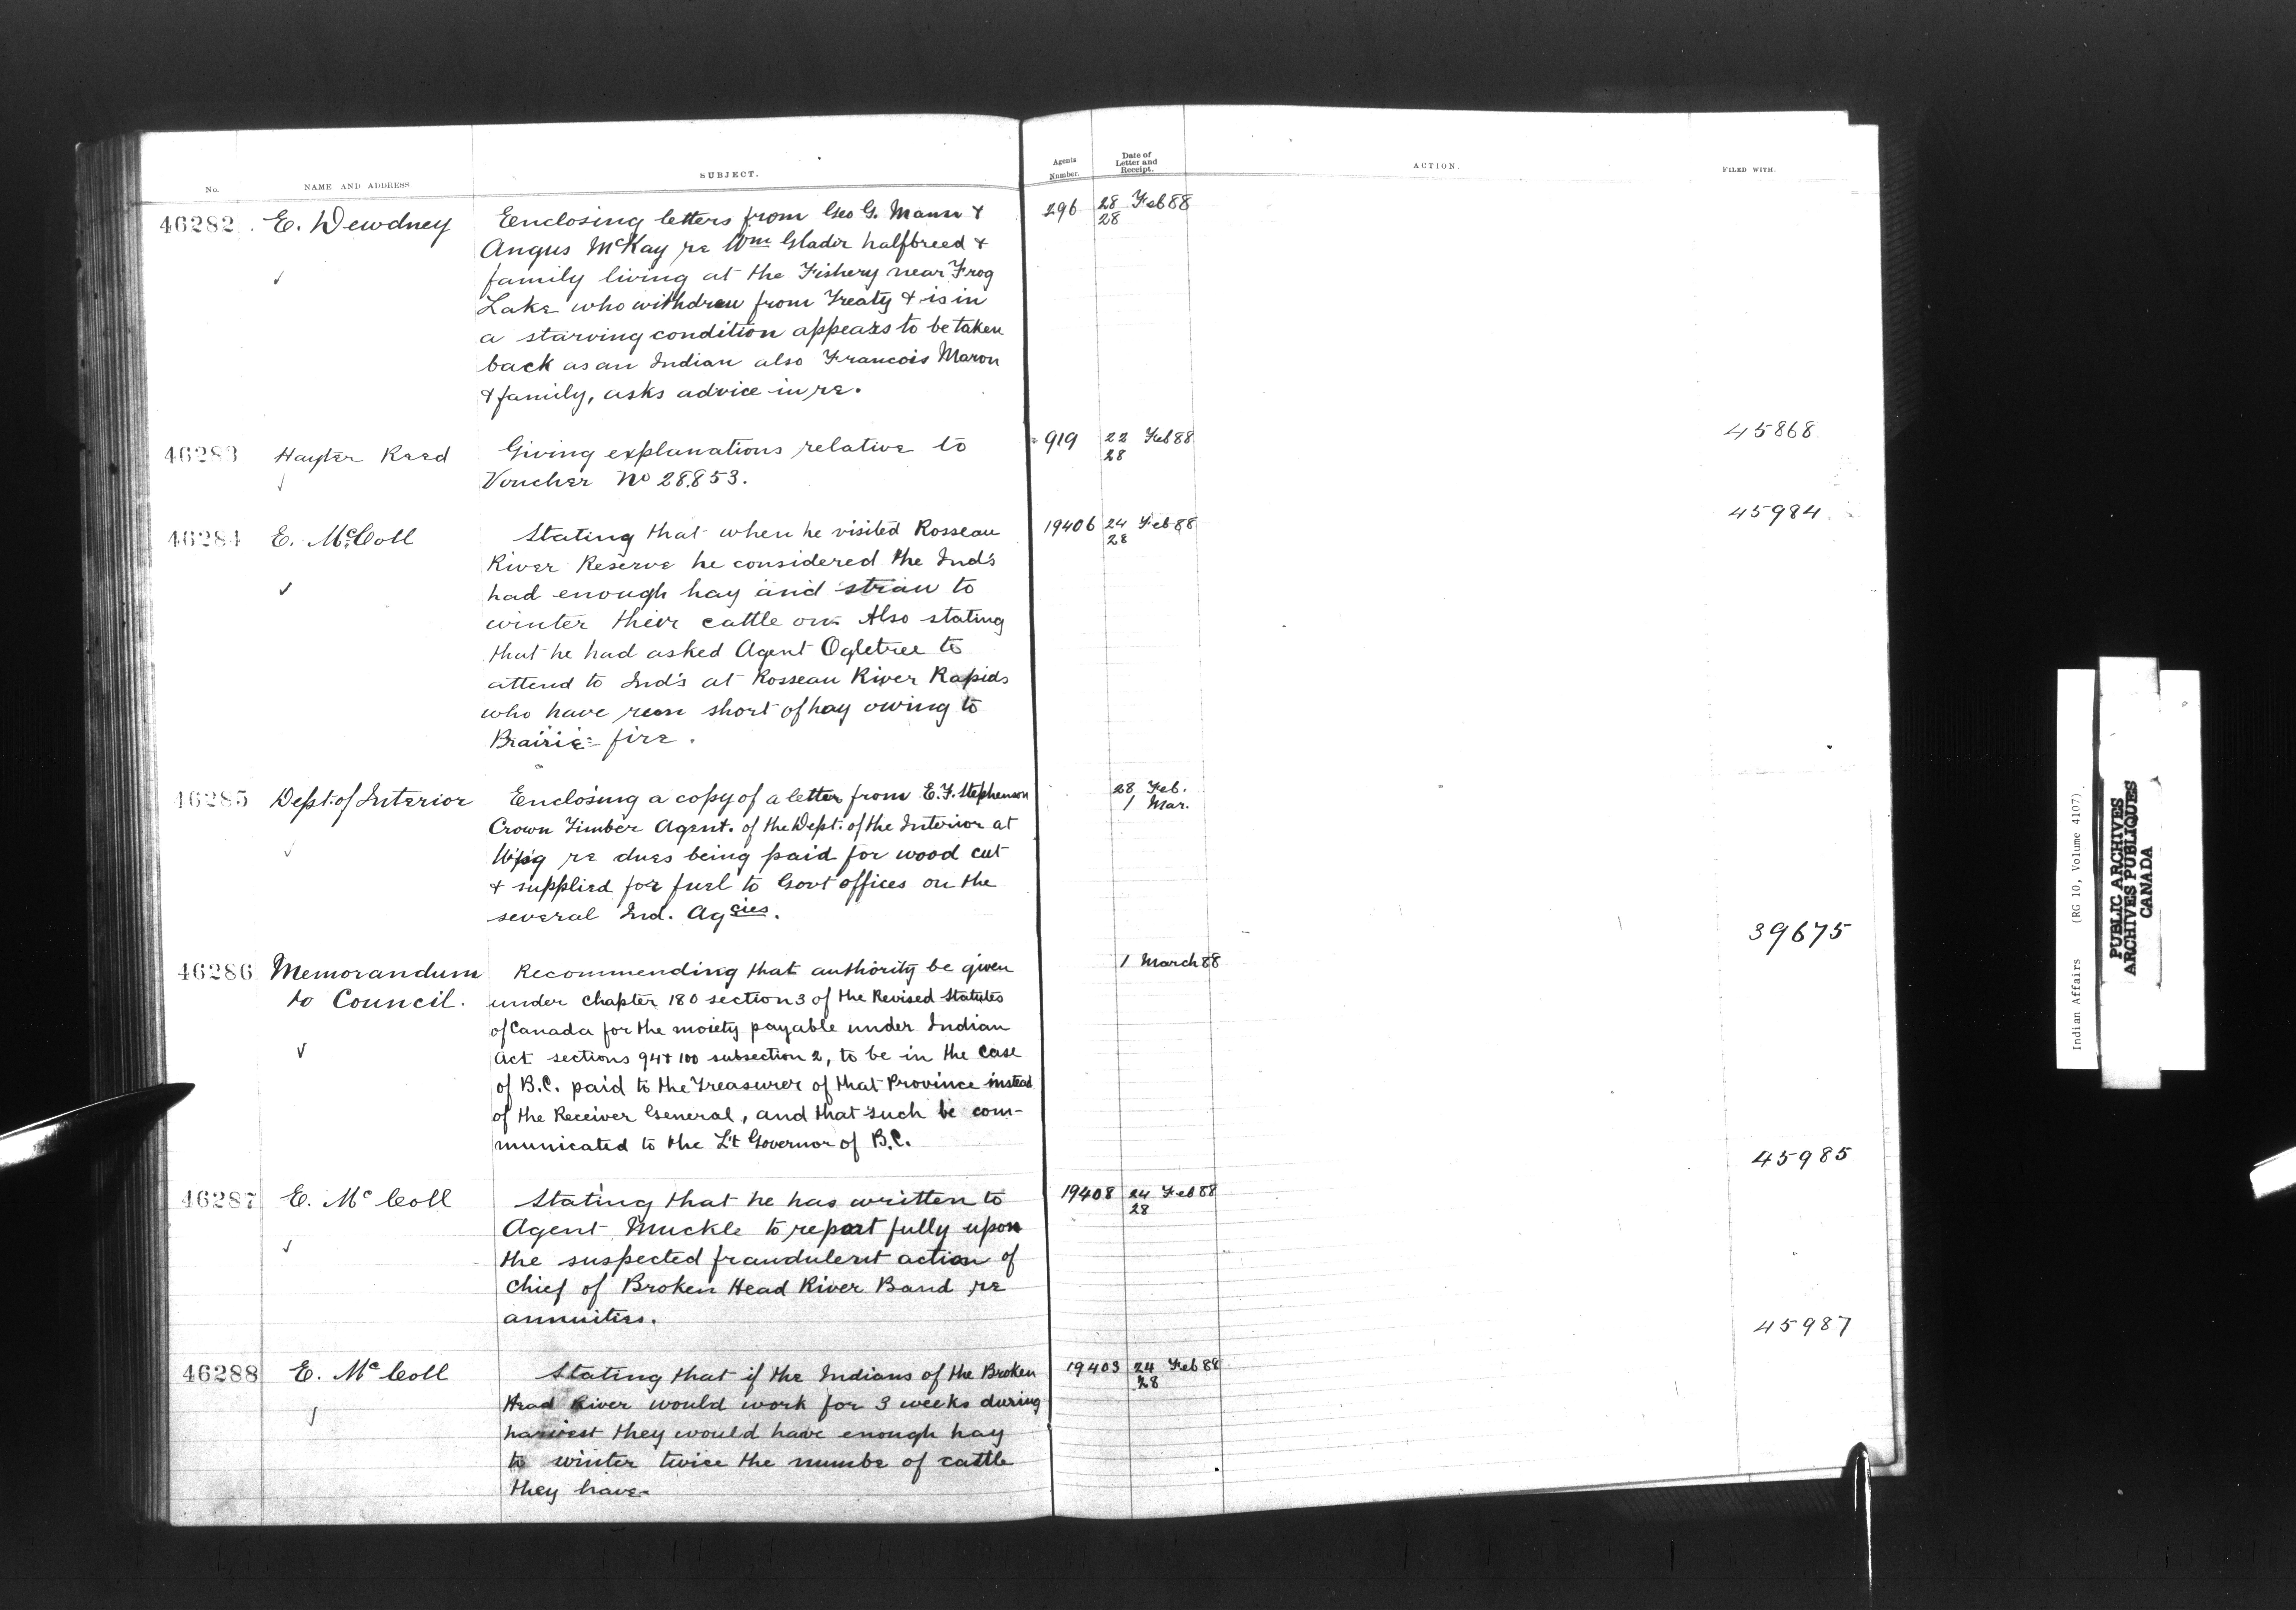 No.
NAME AND ADDRESS
SUBJECT.
Agents
Number.
Date of
Letter and
Receipt.
ACTION.
FILED WITH.
46282
E. Dewdney
Enclosing letters from Geo G. Mann &
Angus McKay re Wm Gladir halfbreed &
family living at the Fishery near Frog
Lake who withdrew from Treaty & is in
a starving condition appears to be taken
back as an Indian also Francois Maron
& family, asks advice in re.
296
28 Feb 88
28
46283
Hayter Reed
Giving explanations relative to
Voucher No 28.853.
919
22 Feb 88
28
45868
46284
E. McColl
Stating that when he visited Rosseau
River Reserve he considered the Ind's
had enough hay and straw to
winter their cattle on. Also stating
that he had asked Agent Ogletree to
attend to Ind's at Rosseau River Rapids
who have run short of hay owing to
Prairie fire.
19406
24 Feb 88
28
45984
46285
Dept. of Interior
Enclosing a copy of a letter from E. F. Stephenson
Crown Timber Agent. of the Dept. of the Interior at
W'p'g re dues being paid for wood cut
& supplied for fuel to Govt offices on the
several Ind. Agcies.
28 Feb.
1 Mar.
39675
46286
Memorandum
to Council.
Recommending that authority be given
under Chapter 180 section 3 of the Revised Statutes
of Canada for the moiety payable under Indian
Act sections 94 & 100 subsection 2, to be in the case
of B.C. paid to the Treasurer of that Province instead
of the Receiver General, and that such be com-
municated to the L't Governor of B.C.
1 March 88
45985
46287
E. McColl
Stating that he has written to
Agent Muckle to report fully upon
the suspected fraudulent action of
Chief of Broken Head River Band re
annuities.
19408
24 Feb 88
28
45987
46288
E. McColl
Stating that if the Indians of the Broken
Head River would work for 3 weeks during
harvest they would have enough hay
to winter twice the numbe of cattle
they have.
19403
24 Feb 88
28
Indian Affairs (RG 10, Volume 4107)
PUBLIC ARCHIVES
ARCHIVES PUBLIQUES
CANADA